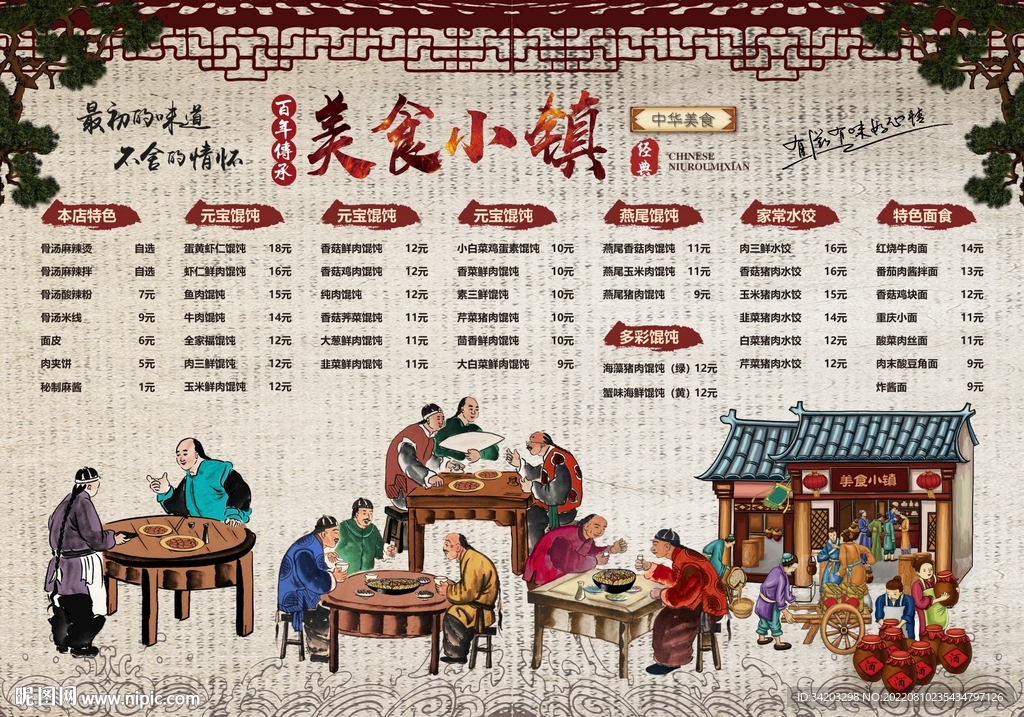 最初的味道
不舍的情怀
百年传承
美食小镇
中华美食
经典
CHINESE
NIUROUMIXIAN
有滋有味好心情
本店特色
骨汤麻辣烫 自选
骨汤麻辣拌 自选
骨汤酸辣粉 7元
骨汤米线 9元
面皮 6元
肉夹饼 5元
秘制麻酱 1元
元宝馄饨
蛋黄虾仁馄饨 18元
虾仁鲜肉馄饨 16元
鱼肉馄饨 15元
牛肉馄饨 14元
全家福馄饨 12元
肉三鲜馄饨 12元
玉米鲜肉馄饨 12元
元宝馄饨
香菇鲜肉馄饨 12元
香菇鸡肉馄饨 12元
纯肉馄饨 12元
香菇荠菜馄饨 11元
大葱鲜肉馄饨 11元
韭菜鲜肉馄饨 11元
元宝馄饨
小白菜鸡蛋素馄饨 10元
香菜鲜肉馄饨 10元
素三鲜馄饨 10元
芹菜猪肉馄饨 10元
茴香鲜肉馄饨 10元
大白菜鲜肉馄饨 9元
燕尾馄饨
燕尾香菇肉馄饨 11元
燕尾玉米肉馄饨 11元
燕尾猪肉馄饨 9元
多彩馄饨
海藻猪肉馄饨（绿）12元
蟹味海鲜馄饨（黄）12元
家常水饺
肉三鲜水饺 16元
香菇猪肉水饺 16元
玉米猪肉水饺 15元
韭菜猪肉水饺 14元
白菜猪肉水饺 12元
芹菜猪肉水饺 12元
特色面食
红烧牛肉面 14元
番茄肉酱拌面 13元
香菇鸡块面 12元
重庆小面 11元
酸菜肉丝面 11元
肉末酸豆角面 9元
炸酱面 9元
美食小镇
酒
酒
酒
酒
昵图网 www.nipic.com
ID:34203298 NO:20220810235434797126